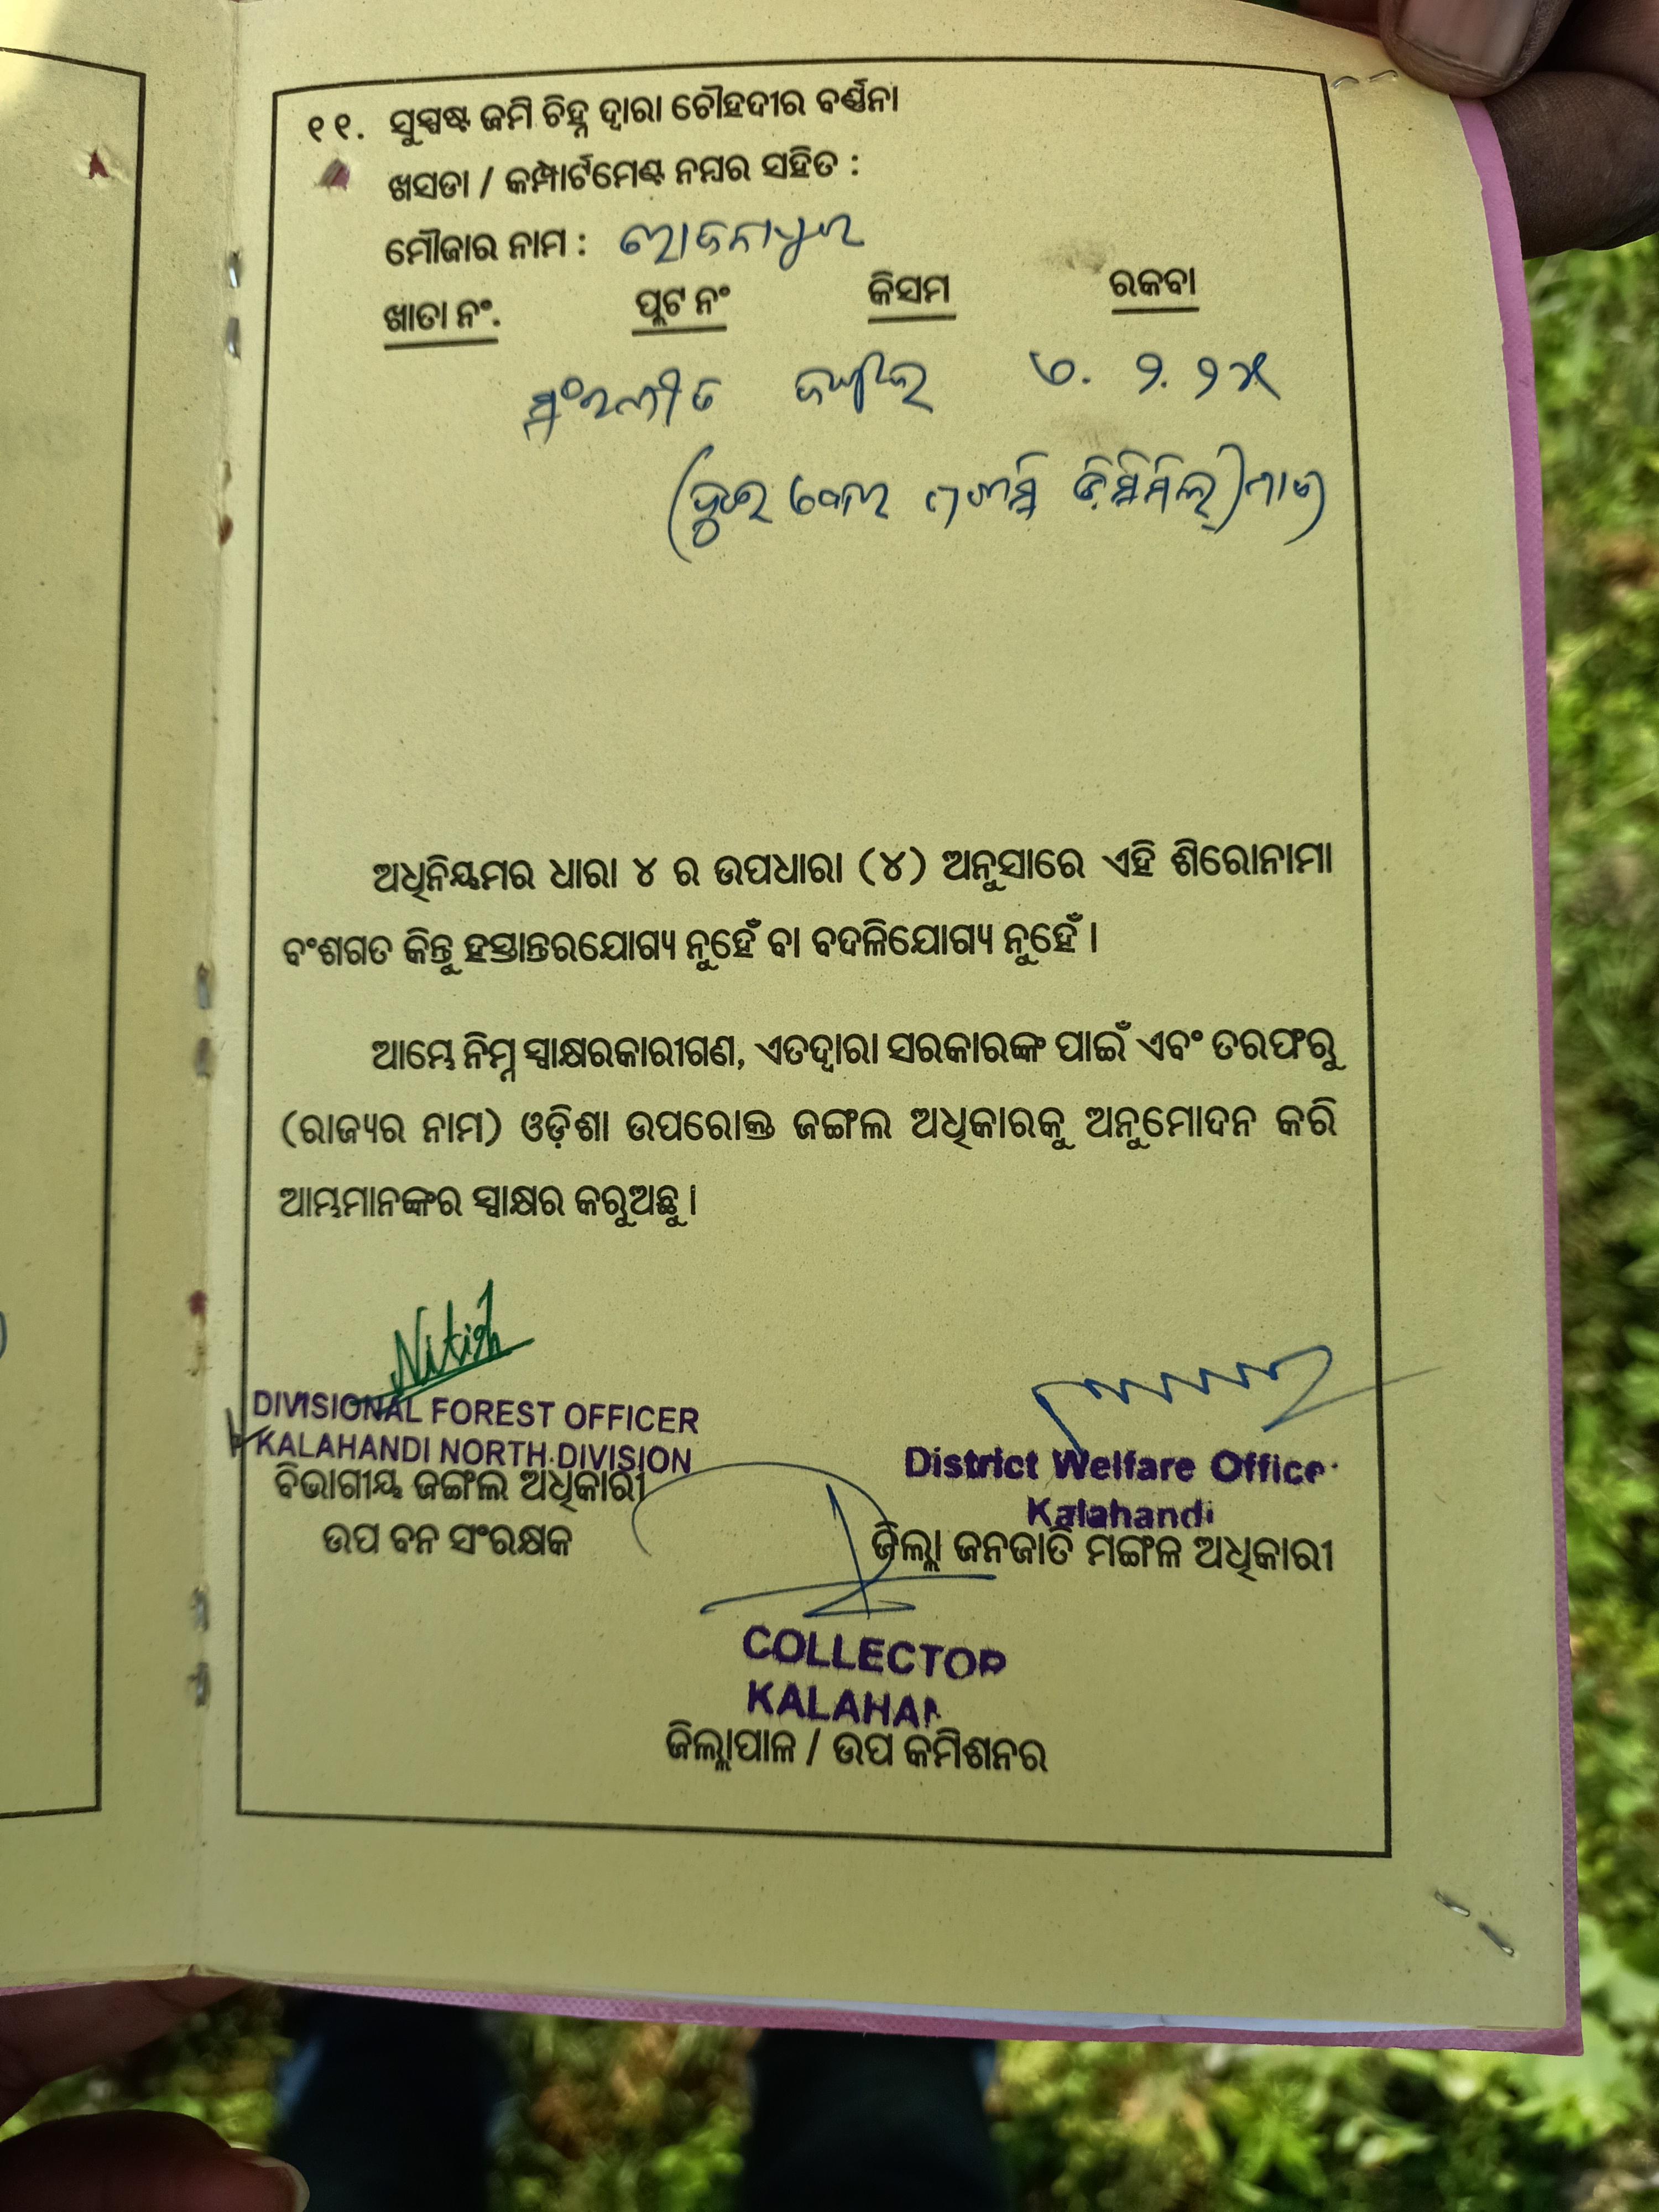 ୧୧. ସୁସ୍ପଷ୍ଟ ଜମି ଚିହ୍ନ ଦ୍ୱାରା ଚୌହଦୀର ବର୍ଣ୍ଣନା
ଖସଡା / କମ୍ପାର୍ଟମେଣ୍ଟ ନମ୍ବର ସହିତ :
ମୌଜାର ନାମ :
ଖାତା ନଂ. ପ୍ଲଟ ନଂ କିସମ ରକବା
ସଂରକ୍ଷୀତ ଜଙ୍ଗଲ ୨.୨୪
ଅଧିନିୟମର ଧାରା ୪ ର ଉପଧାରା (୪) ଅନୁସାରେ ଏହି ଶିରୋନାମା
ବଂଶଗତ କିନ୍ତୁ ହସ୍ତାନ୍ତରଯୋଗ୍ୟ ନୁହେଁ ବା ବଦଳିଯୋଗ୍ୟ ନୁହେଁ ।
ଆମ୍ଭେ ନିମ୍ନ ସ୍ୱାକ୍ଷରକାରୀଗଣ, ଏତଦ୍ୱାରା ସରକାରଙ୍କ ପାଇଁ ଏବଂ ତରଫରୁ
(ରାଜ୍ୟର ନାମ) ଓଡ଼ିଶା ଉପରୋକ୍ତ ଜଙ୍ଗଲ ଅଧିକାରକୁ ଅନୁମୋଦନ କରି
ଆମ୍ଭମାନଙ୍କର ସ୍ୱାକ୍ଷର କରୁଅଛୁ ।
Nitish
DIVISIONAL FOREST OFFICER
KALAHANDI NORTH DIVISION
ବିଭାଗୀୟ ଜଙ୍ଗଲ ଅଧିକାରୀ
ଉପ ବନ ସଂରକ୍ଷକ
District Welfare Office
Kalahandi
ଜିଲ୍ଲା ଜନଜାତି ମଙ୍ଗଳ ଅଧିକାରୀ
COLLECTOR
KALAHAN
ଜିଲ୍ଲାପାଳ / ଉପ କମିଶନର